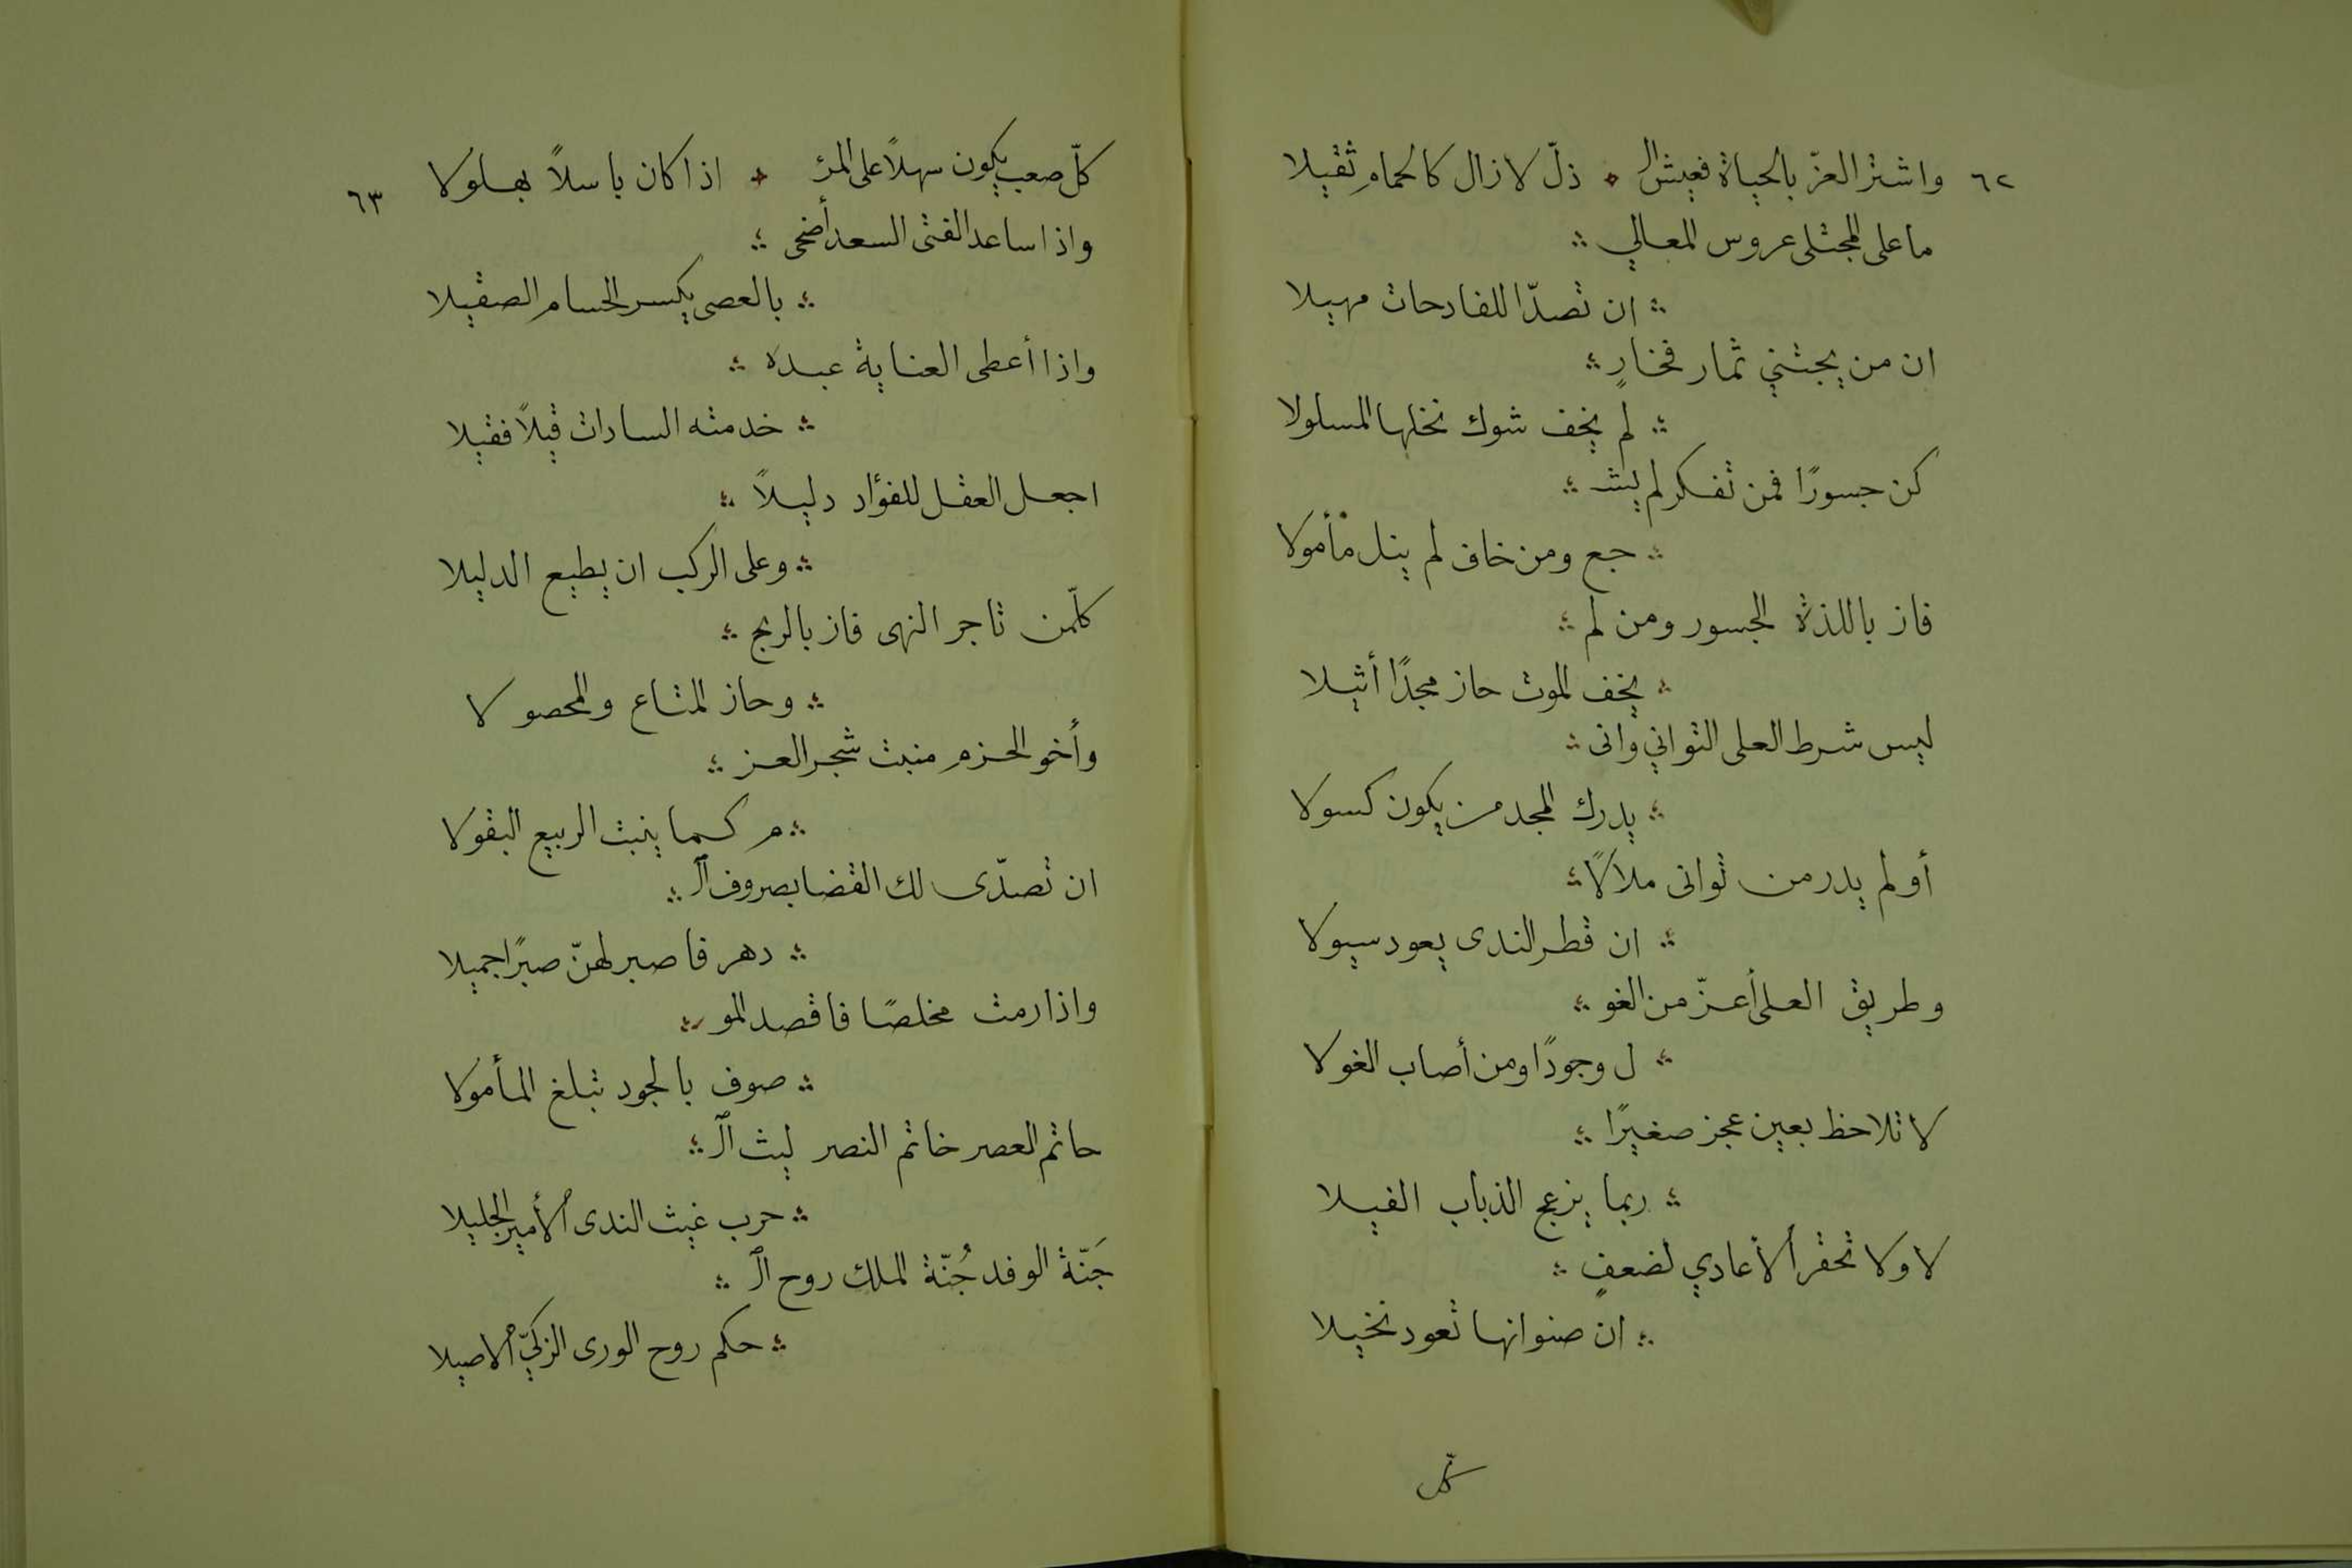 ٦٢
واشتر العزّ بالحياة فعيش ال ذلّ لا زال كالحمام ثقيلا
ما على المجتلى عروس المعالي
ان تصدّا للفادحات مهيلا
ان من يجتني ثمار فخارٍ
لم يخف شوك نخلها المسلولا
كن جسورًا فمن تفكر لم يشـ
جع ومن خاف لم ينل مأمولا
فاز باللذة الجسور ومن لم
يخف الموت حاز مجدًا أثيلا
ليس شرط العلى التواني وانى
يدرك المجد من يكون كسولا
أولم يدر من توانى ملالاً
ان قطر الندى يعود سيولا
وطريق العلى أعزّ من الغو
ل وجودًا ومن أصاب الغولا
لا تلاحظ بعين عجز صغيرًا
ربما يزعج الذباب الفيلا
لا ولا تحقر الأعادي لضعفٍ
ان صنوانها تعود نخيلا
كلّ
٦٣
كلّ صعب يكون سهلاً على المرء اذا كان باسلاً بهلولا
واذا ساعد الفتى السعد أضحى
بالعصى يكسر الحسام الصقيلا
واذا أعطى العناية عبده
خدمته السادات قيلاً فقيلا
اجعل العقل للفؤاد دليلاً
وعلى الركب ان يطيع الدليلا
كلّمن تاجر النهى فاز بالربح
وحاز المتاع والمحصولا
وأخو الحزم منبت شجر العز
م كما ينبت الربيع البقولا
ان تصدّى لك القضا بصروف الـ
دهر فاصبر لهنّ صبرًا جميلا
واذا رمت مخلصًا فاقصد المو
صوف بالجود تبلغ المأمولا
حاتم العصر خاتم النصر ليث الـ
حرب غيث الندى الأمير الجليلا
جَنّة الوفد جُنّة الملك روح الـ
حكم روح الورى الزكيّ الاصيلا